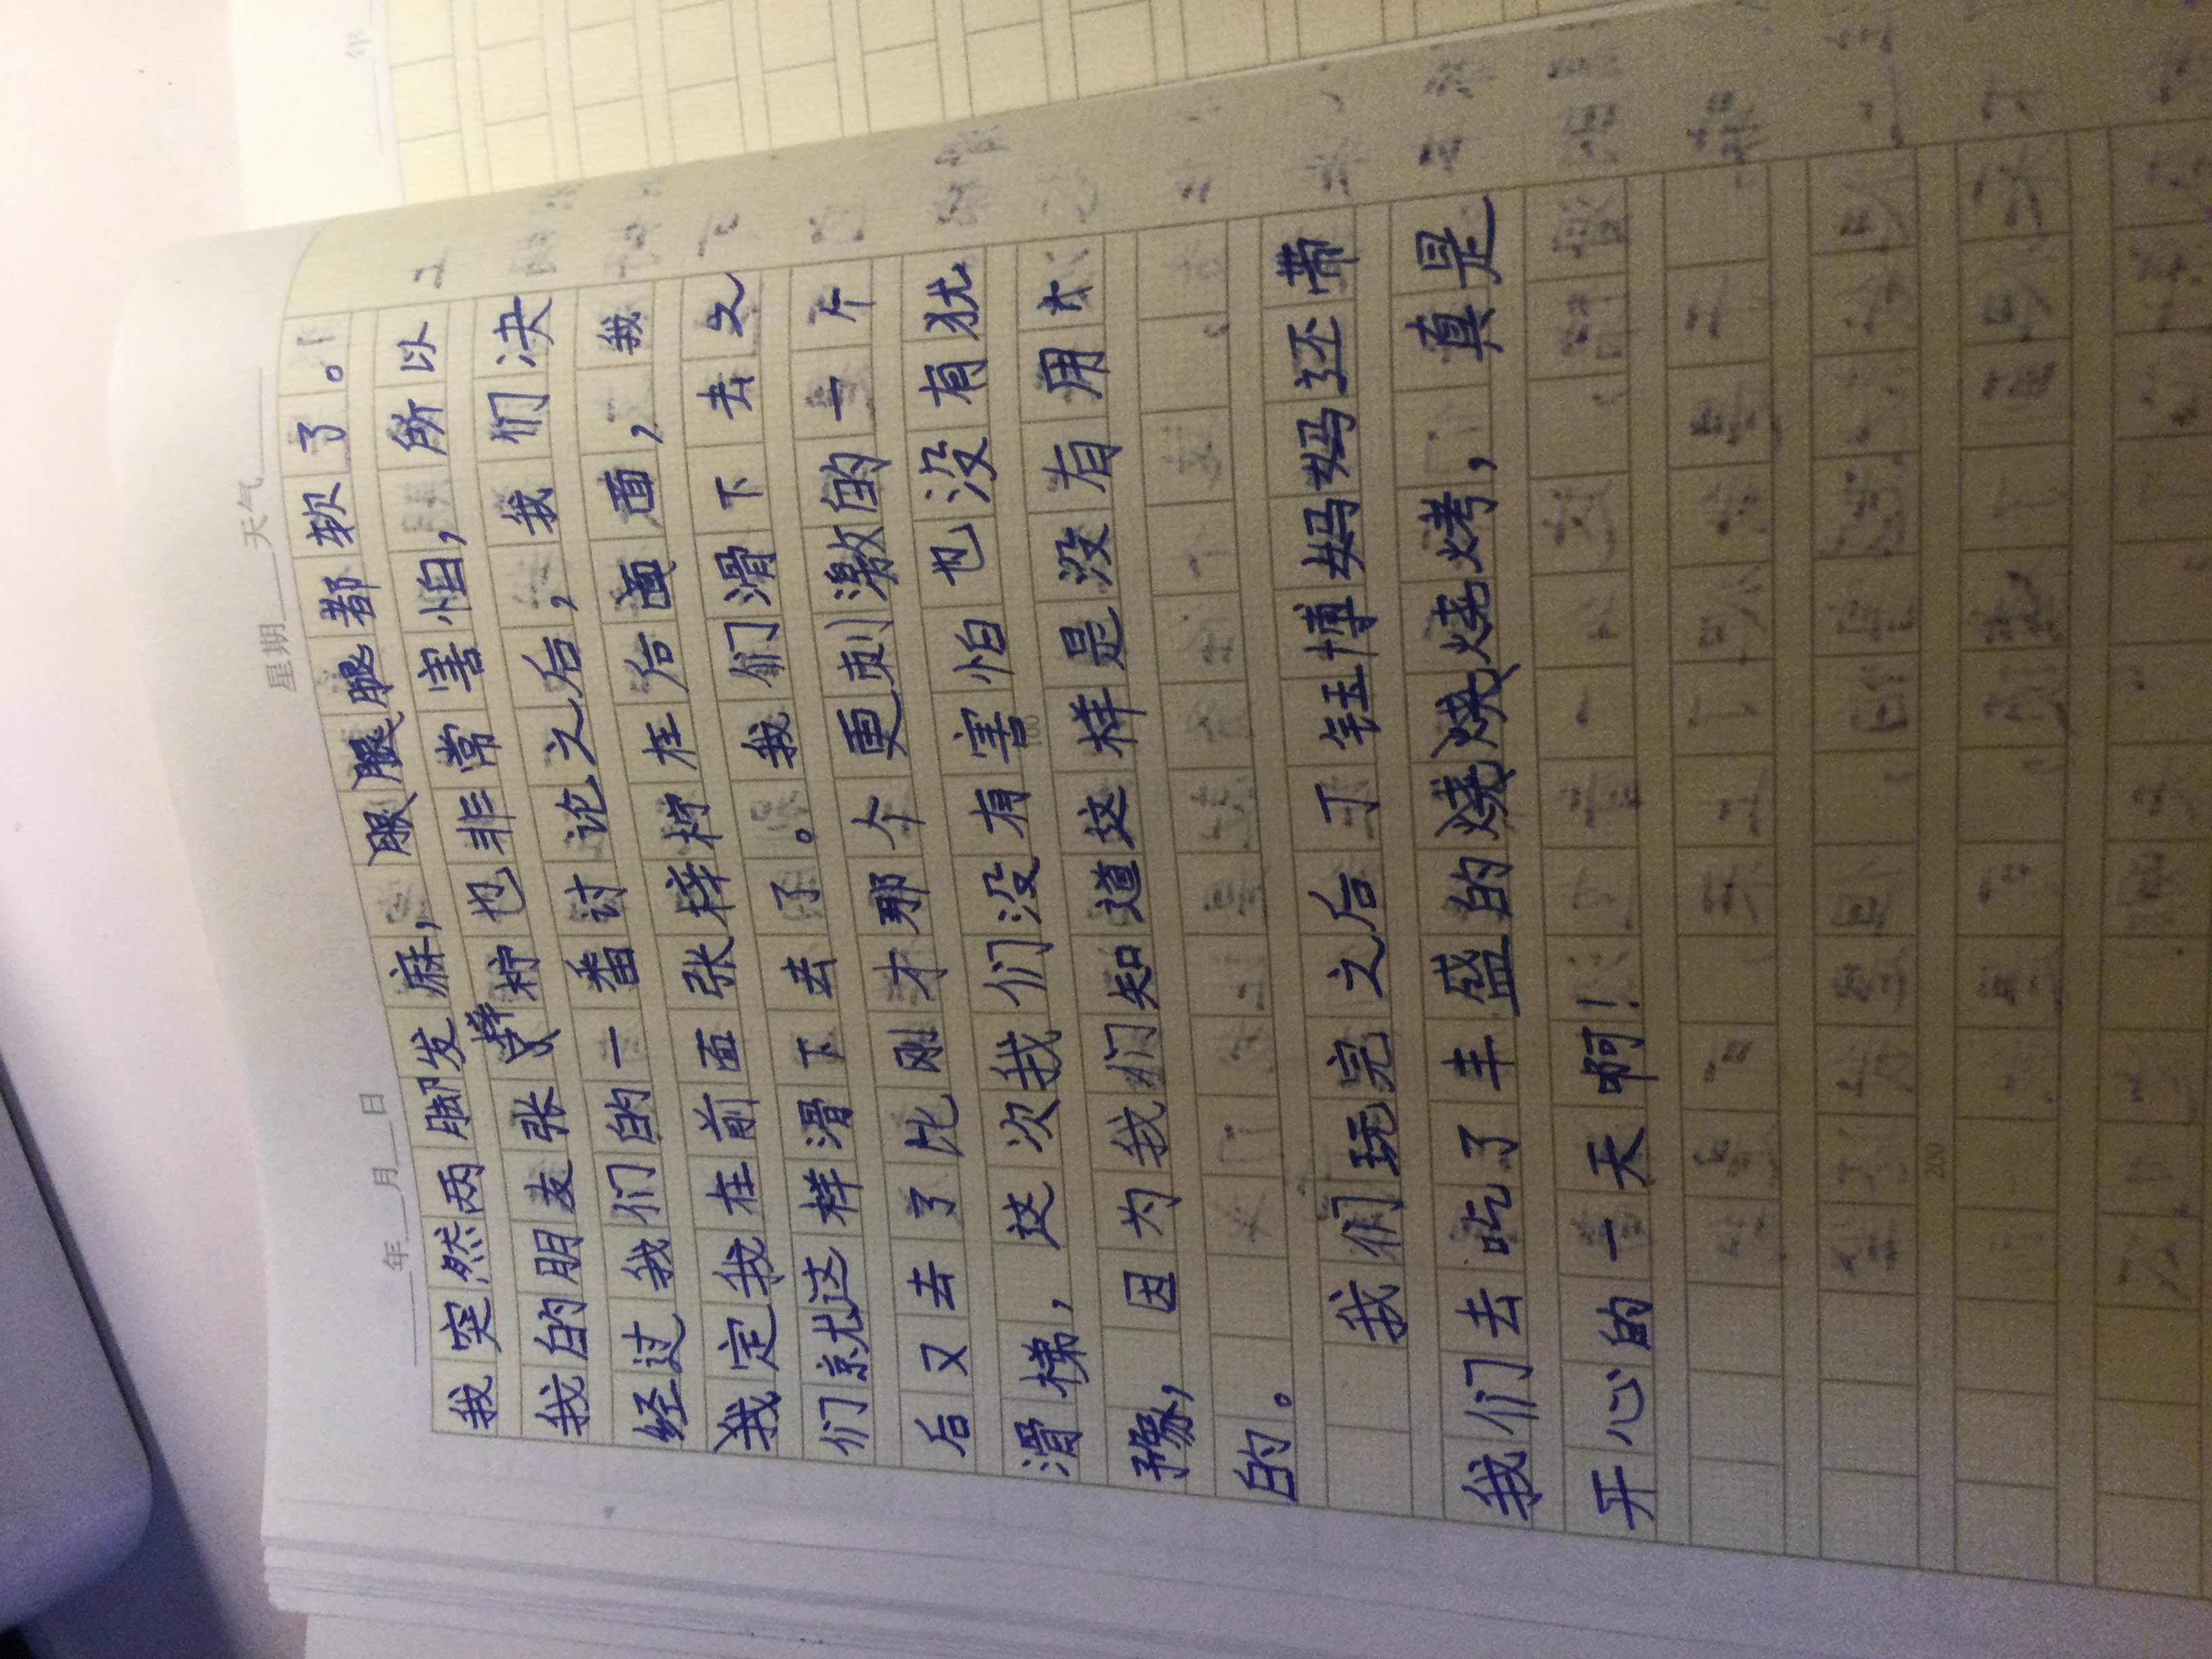 年 月 日 星期 天气
我突然两脚发麻，腿都软了。
我的朋友张梓柠也非常害怕，所以
经过我们的一番讨论之后，我们决
定我在前面张梓柠在后面，我
们就这样滑下去了。我们滑下去之
后又去了比刚才那个更刺激的一个
滑梯，这次我们没有害怕也没有犹
豫，因为我们知道这样是没有用
的。
我们玩完之后丁钰博妈妈还带
我们去吃了丰盛的烧烤，真是
开心的一天啊！
100
200
年